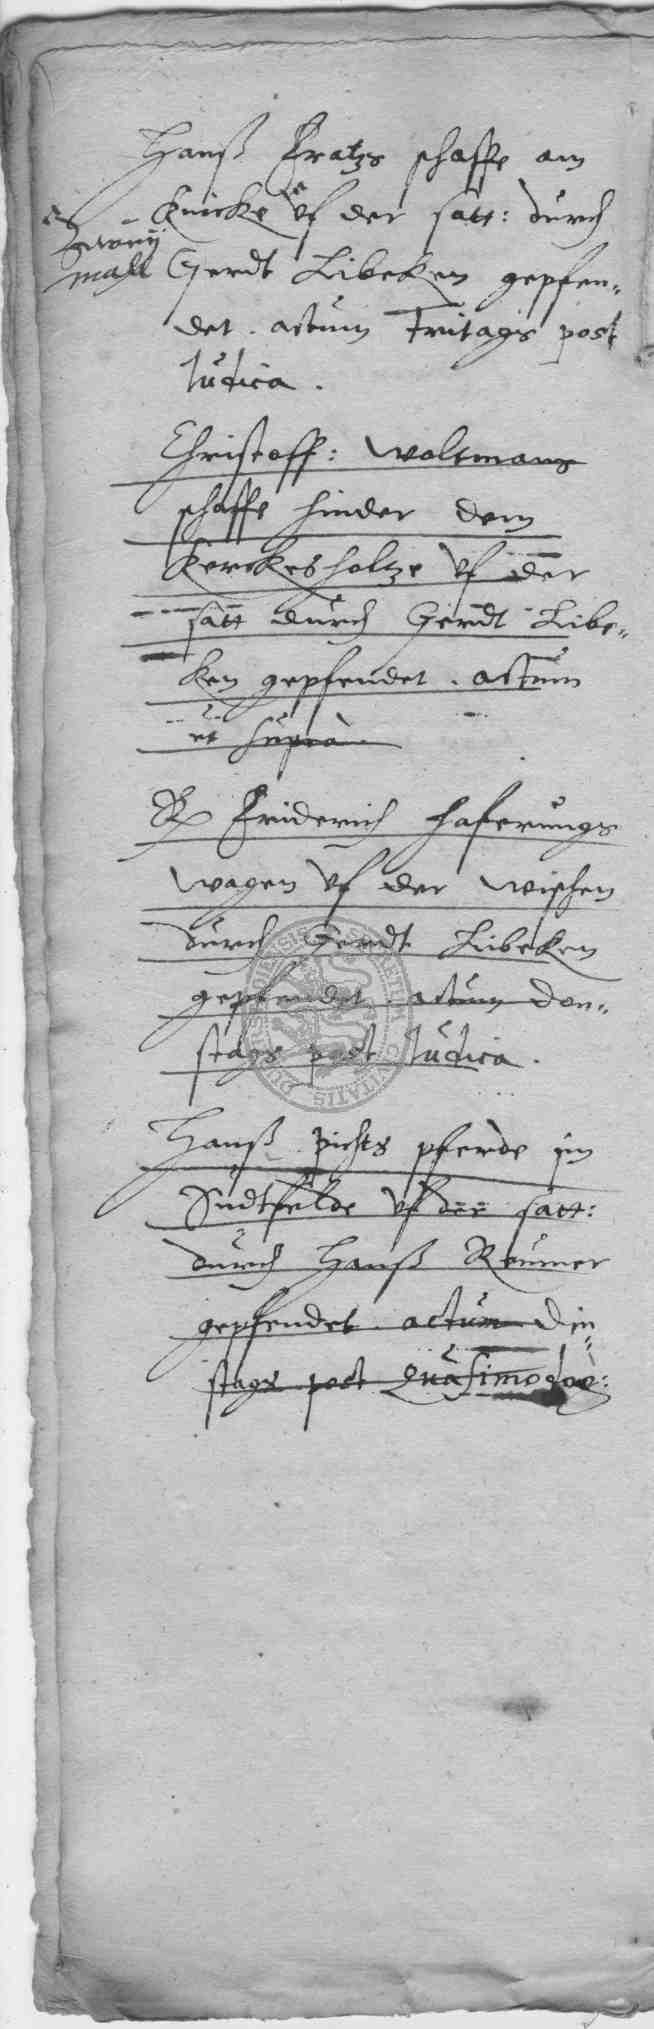 Hanß Fratzs schaffe am
Knicke uf der satt: durch
zwey
mall
Gerdt Libeken gepfen„
det. actum Fritagis post
Iudica.
Christoff: Woltmans
schaffe hinder dem
Kerckesholtze uf der
satt durch Gerdt Libe„
ken gepfendet. actum
ut supra.
Friderich Haferungs
wagen uf der wischen
durch Gerdt Libeken
gepfendet. actum don„
stags post Iudica.
Hanß Pichts pferde im
Sudtfelde uf der satt:
durch Hanß Reumer
gepfendet. actum Din„
stags post Quasimodoge: